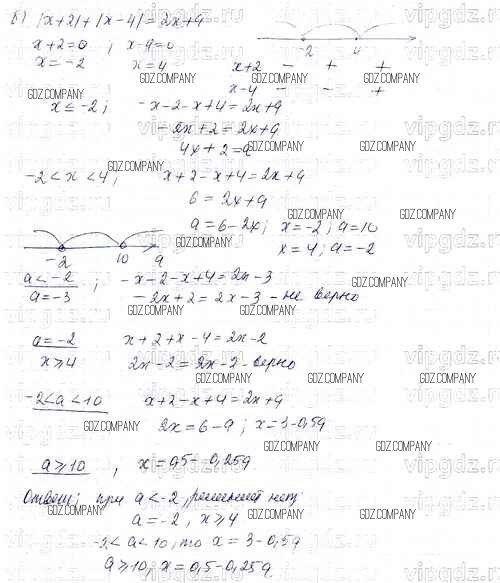 б) |x+2|+|x-4|=2x+a
x+2=0 ; x-4=0
x=-2 x=4
-2 4
x+2 - + +
x-4 - - +
x≤-2; -x-2-x+4=2x+a
-2x+2=2x+a
4x+2=a
-2<x<4; x+2-x+4=2x+a
6=2x+a
a=6-2x; x=-2; a=10
x=4; a=-2
-2 10 a
a<-2 ; -x-2-x+4=2x-3
a=-3 -2x+2=2x-3 - не верно
a=-2 x+2+x-4=2x-2
x≥4 2x-2=2x-2 - верно
-2<a<10 x+2-x+4=2x+a
2x=6-a; x=3-0,5a
a≥10, x=0,5-0,25a
Ответ: при a<-2, решений нет
a=-2, x≥4
-2<a<10, то x=3-0,5a
a≥10, x=0,5-0,25a
GDZ.COMPANY
vipgdz.ru